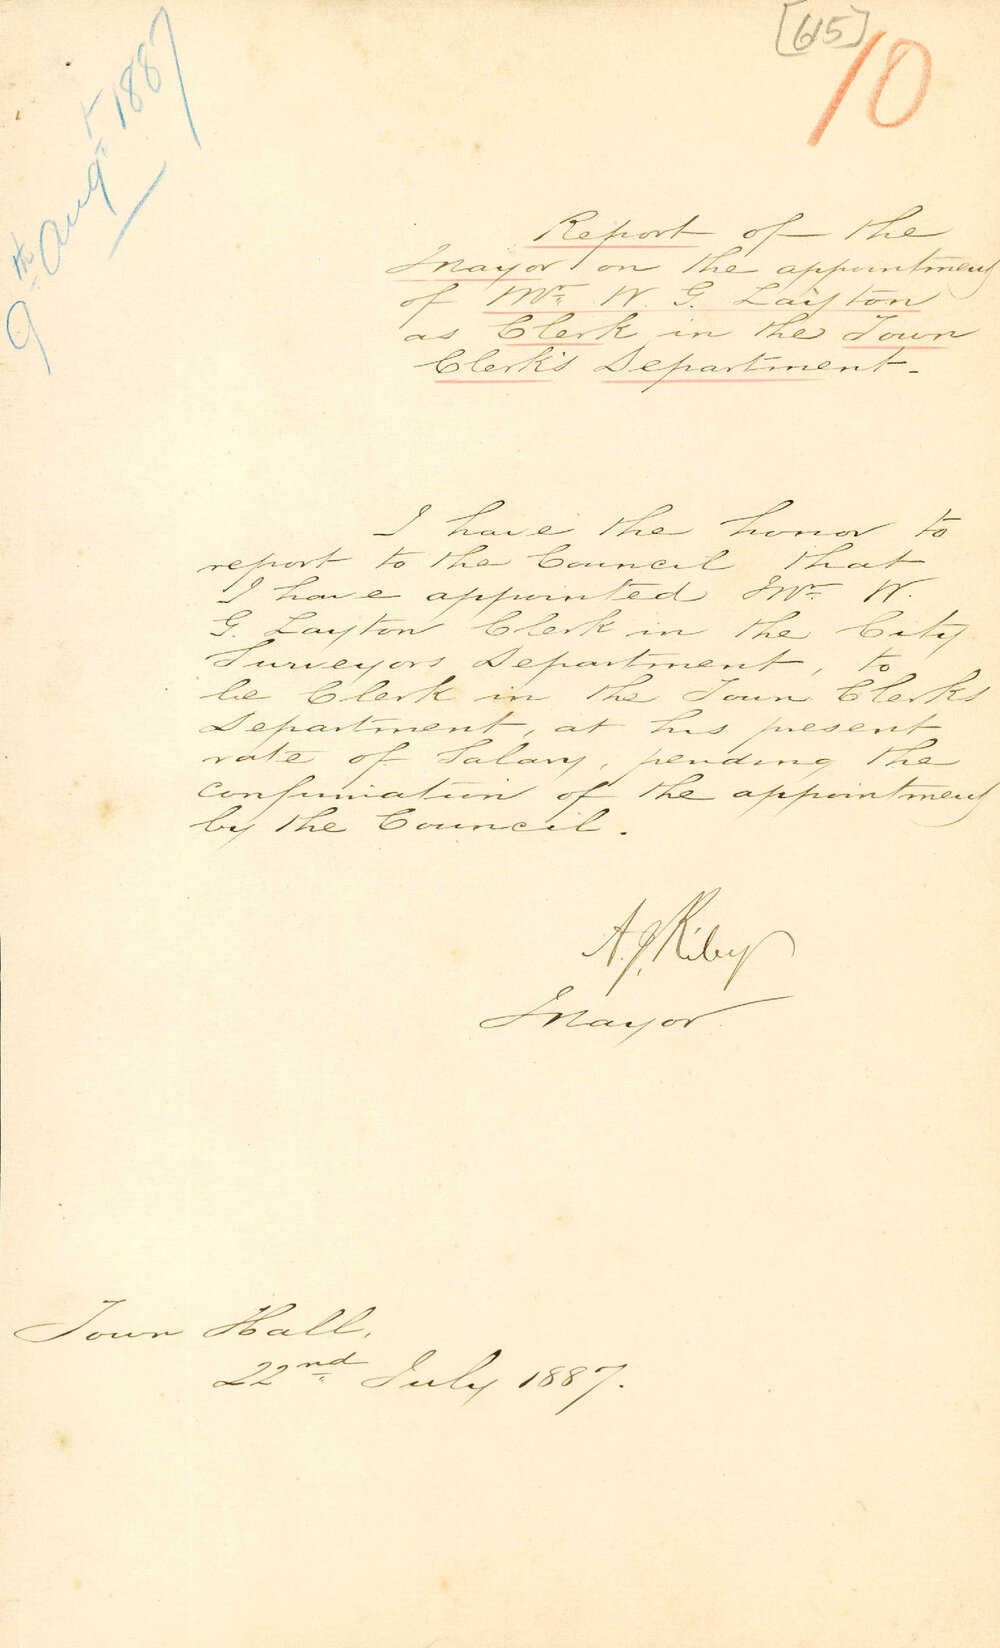 [615]
10
9th Augt 1887
Report of the
Mayor on the appointment
of Mr. W. G. Layton
as Clerk in the Town
Clerk's Department.
I have the honor to
report to the Council that
I have appointed Mr. W.
G. Layton Clerk in the City
Surveyors Department, to
be Clerk in the Town Clerks
Department, at his present
rate of Salary, pending the
confirmation of the appointment
by the Council.
A. J. Riley
Mayor.
Town Hall,
22nd July 1887.